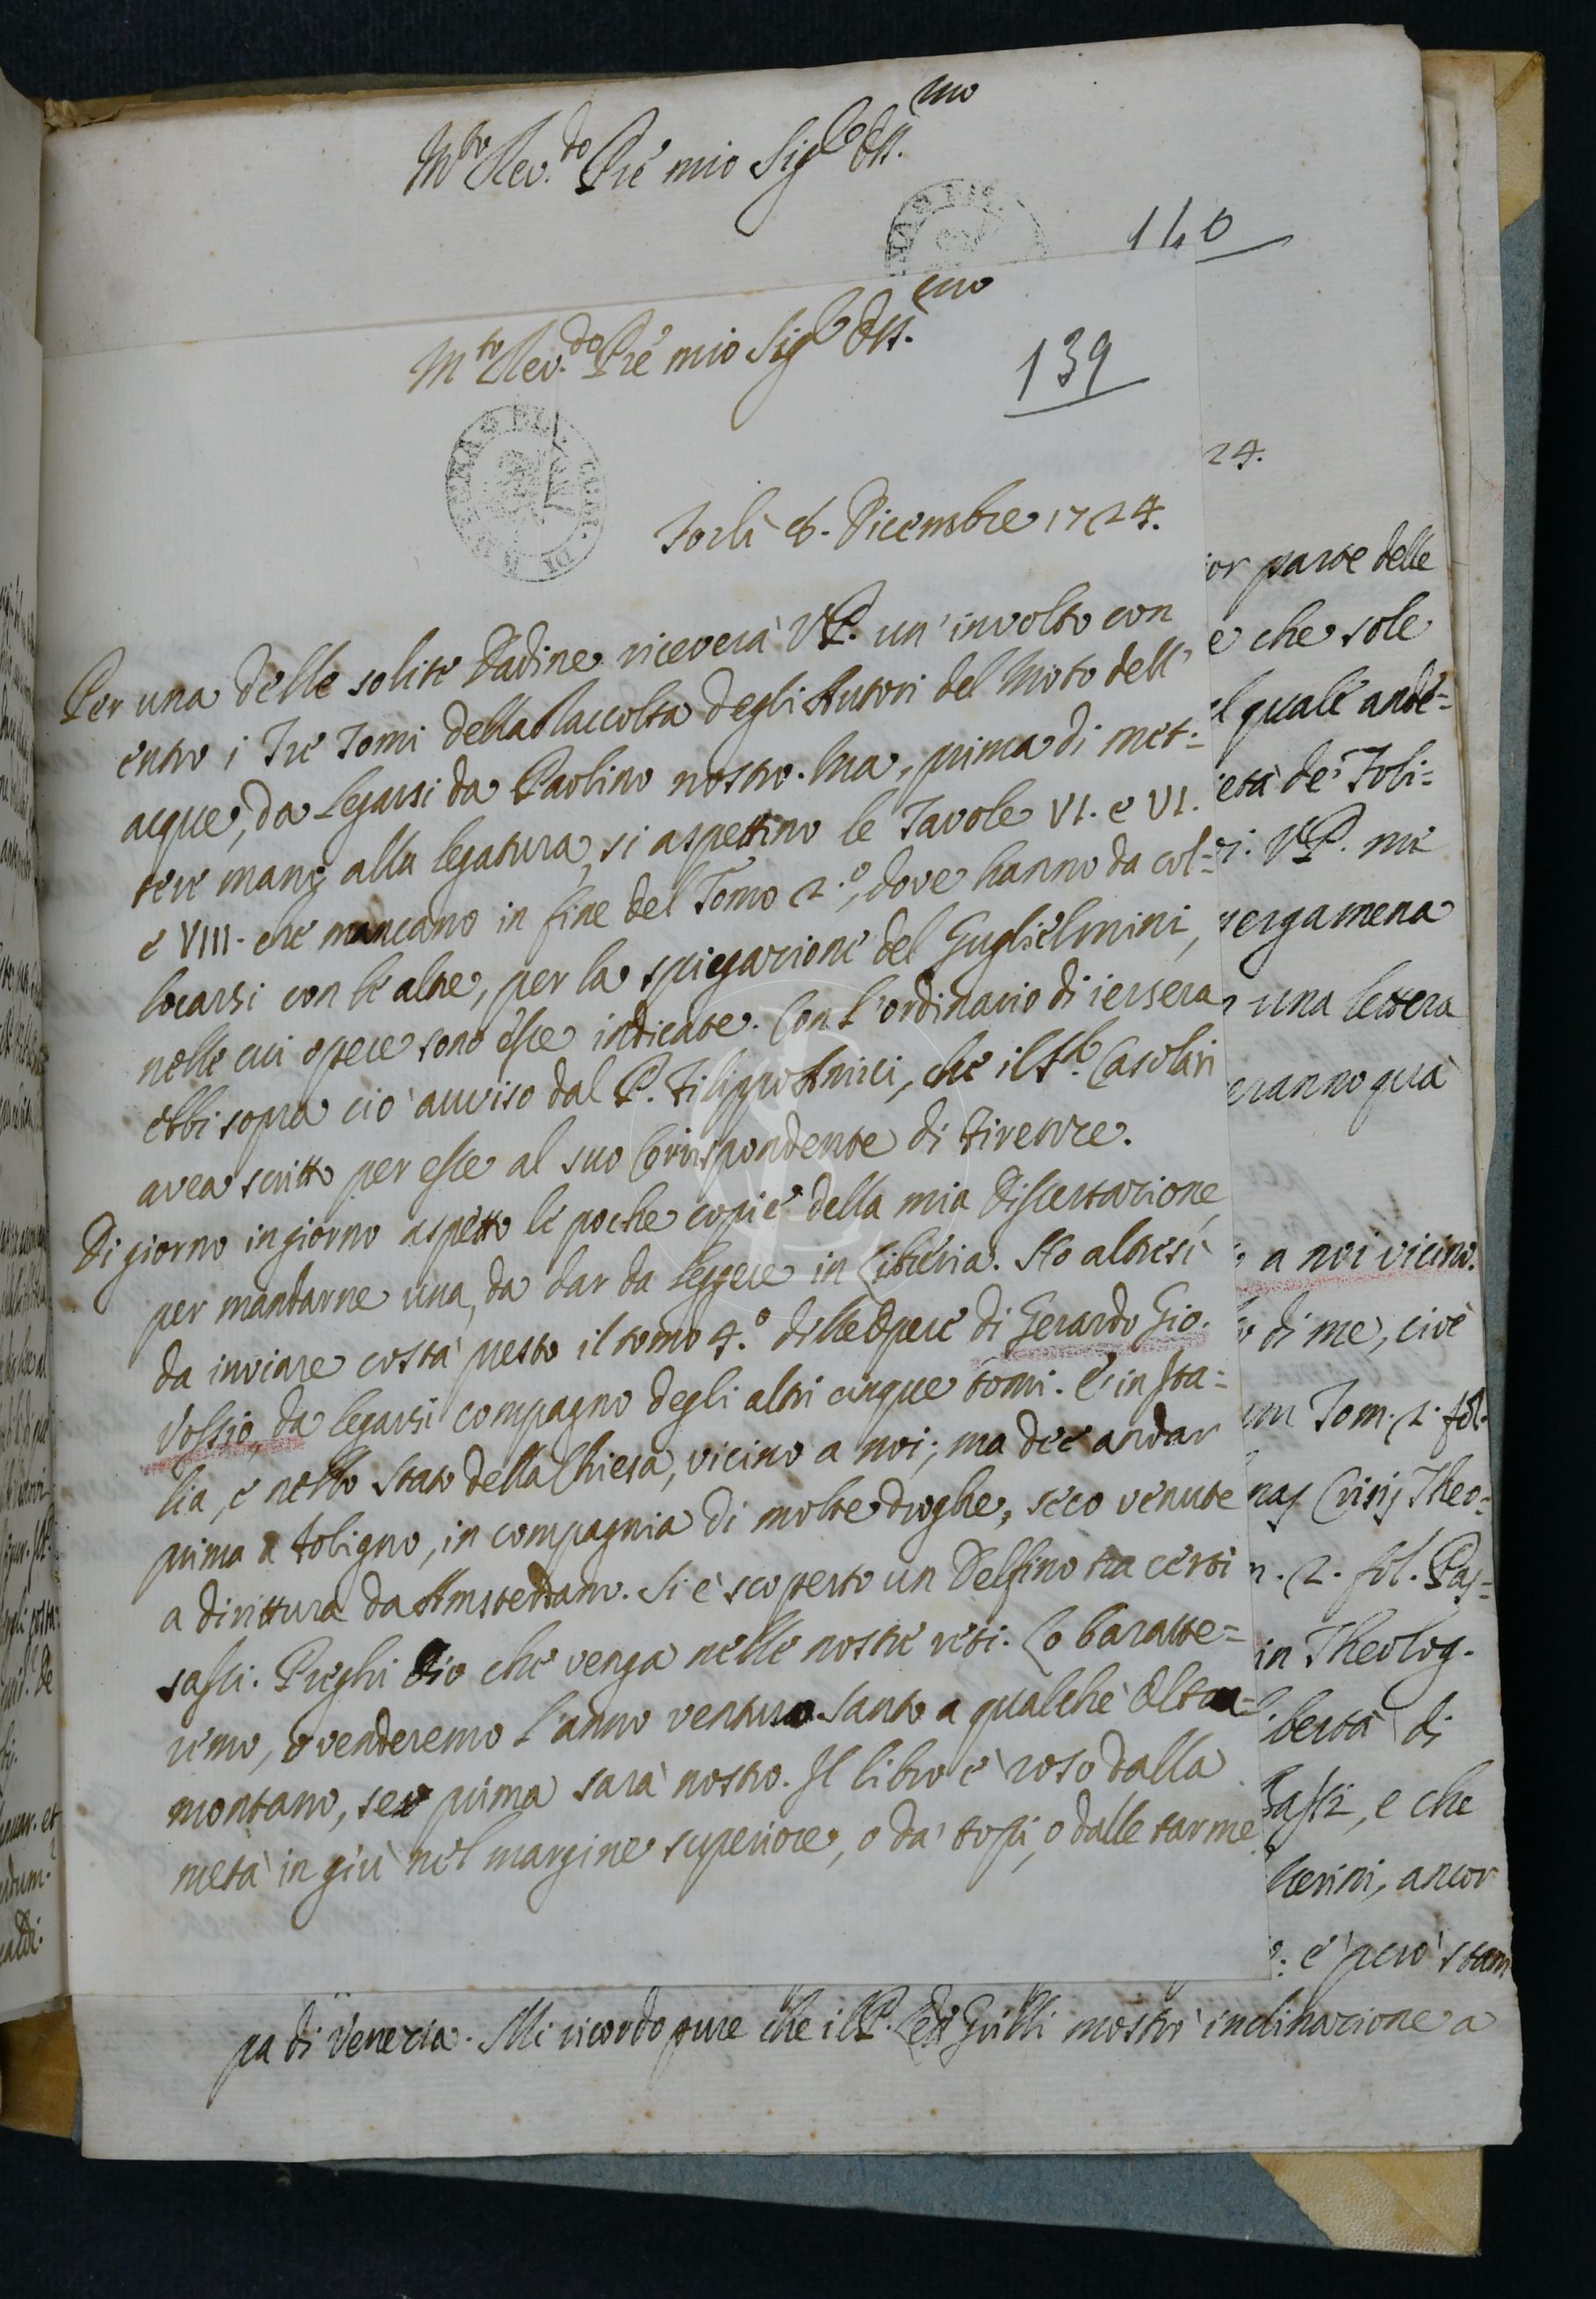 M.to Rev.do Pre mio Sig.e Oss.mo
140
M.to Rev.do Pre mio Sig.e Oss.mo
139
24.
Forlì 8. Dicembre 1724.
Per una delle solite Badine riceverà V.P. un'involto con
entro i Tre Tomi della Raccolta degli Autori del Moto dell'
acque, da legarsi da Paolino nostro. Ma, prima di met=
tere mano alla legatura, si aspettino le Tavole VI. e VI.
e VIII. che mancano in fine del Tomo 2.o, dove hanno da col=
locarsi con le altre, per la spiegazione del Guglielmini,
nelle cui opere sono esse indicate. Con l'ordinario di iersera
ebbi sopra ciò avviso dal P. Filippo Amici, che il Casolari
avea scritto per esse al suo Corrispondente di Firenze.
Di giorno in giorno aspetto le poche copie della mia Dissertazione,
per mandarne una, da dar da leggere in Libreria. Ho altresì
da inviare costà presto il tomo 4.o delle Opere di Gerardo Gio.
Vossio, da legarsi compagno degli altri cinque tomi. È in Ita=
lia, e nello Stato della Chiesa, vicino a noi; ma dee andar
prima a Foligno, in compagnia di molte droghe, seco venute
a dirittura da Amsterdamo. Si è scoperto un Delfino tra certi
sassi. Preghi Dio che venga nelle nostre reti. Lo baratte=
remo, o venderemo l'anno venturo Santo a qualche Oltra=
montano, se prima sarà nostro. Il libro è roso dalla
metà in giù nel margine superiore, o da' topi, o dalle tarme
or parte delle
e che sole
l quale ande=
ietà de' Foli=
i. V.P. me
pergamena
una lettera
eranno quà
a noi vicino.
di me, cioè
um Tom. 2. fol.
nas Crisis Theo=
2. fol. Pas=
in Theolog.
libertà di
Bassi, e che
herini, ancor
è però stam
pa di Venezia. Mi ricordo pure che il P. Grilli mostrò inclinazione a